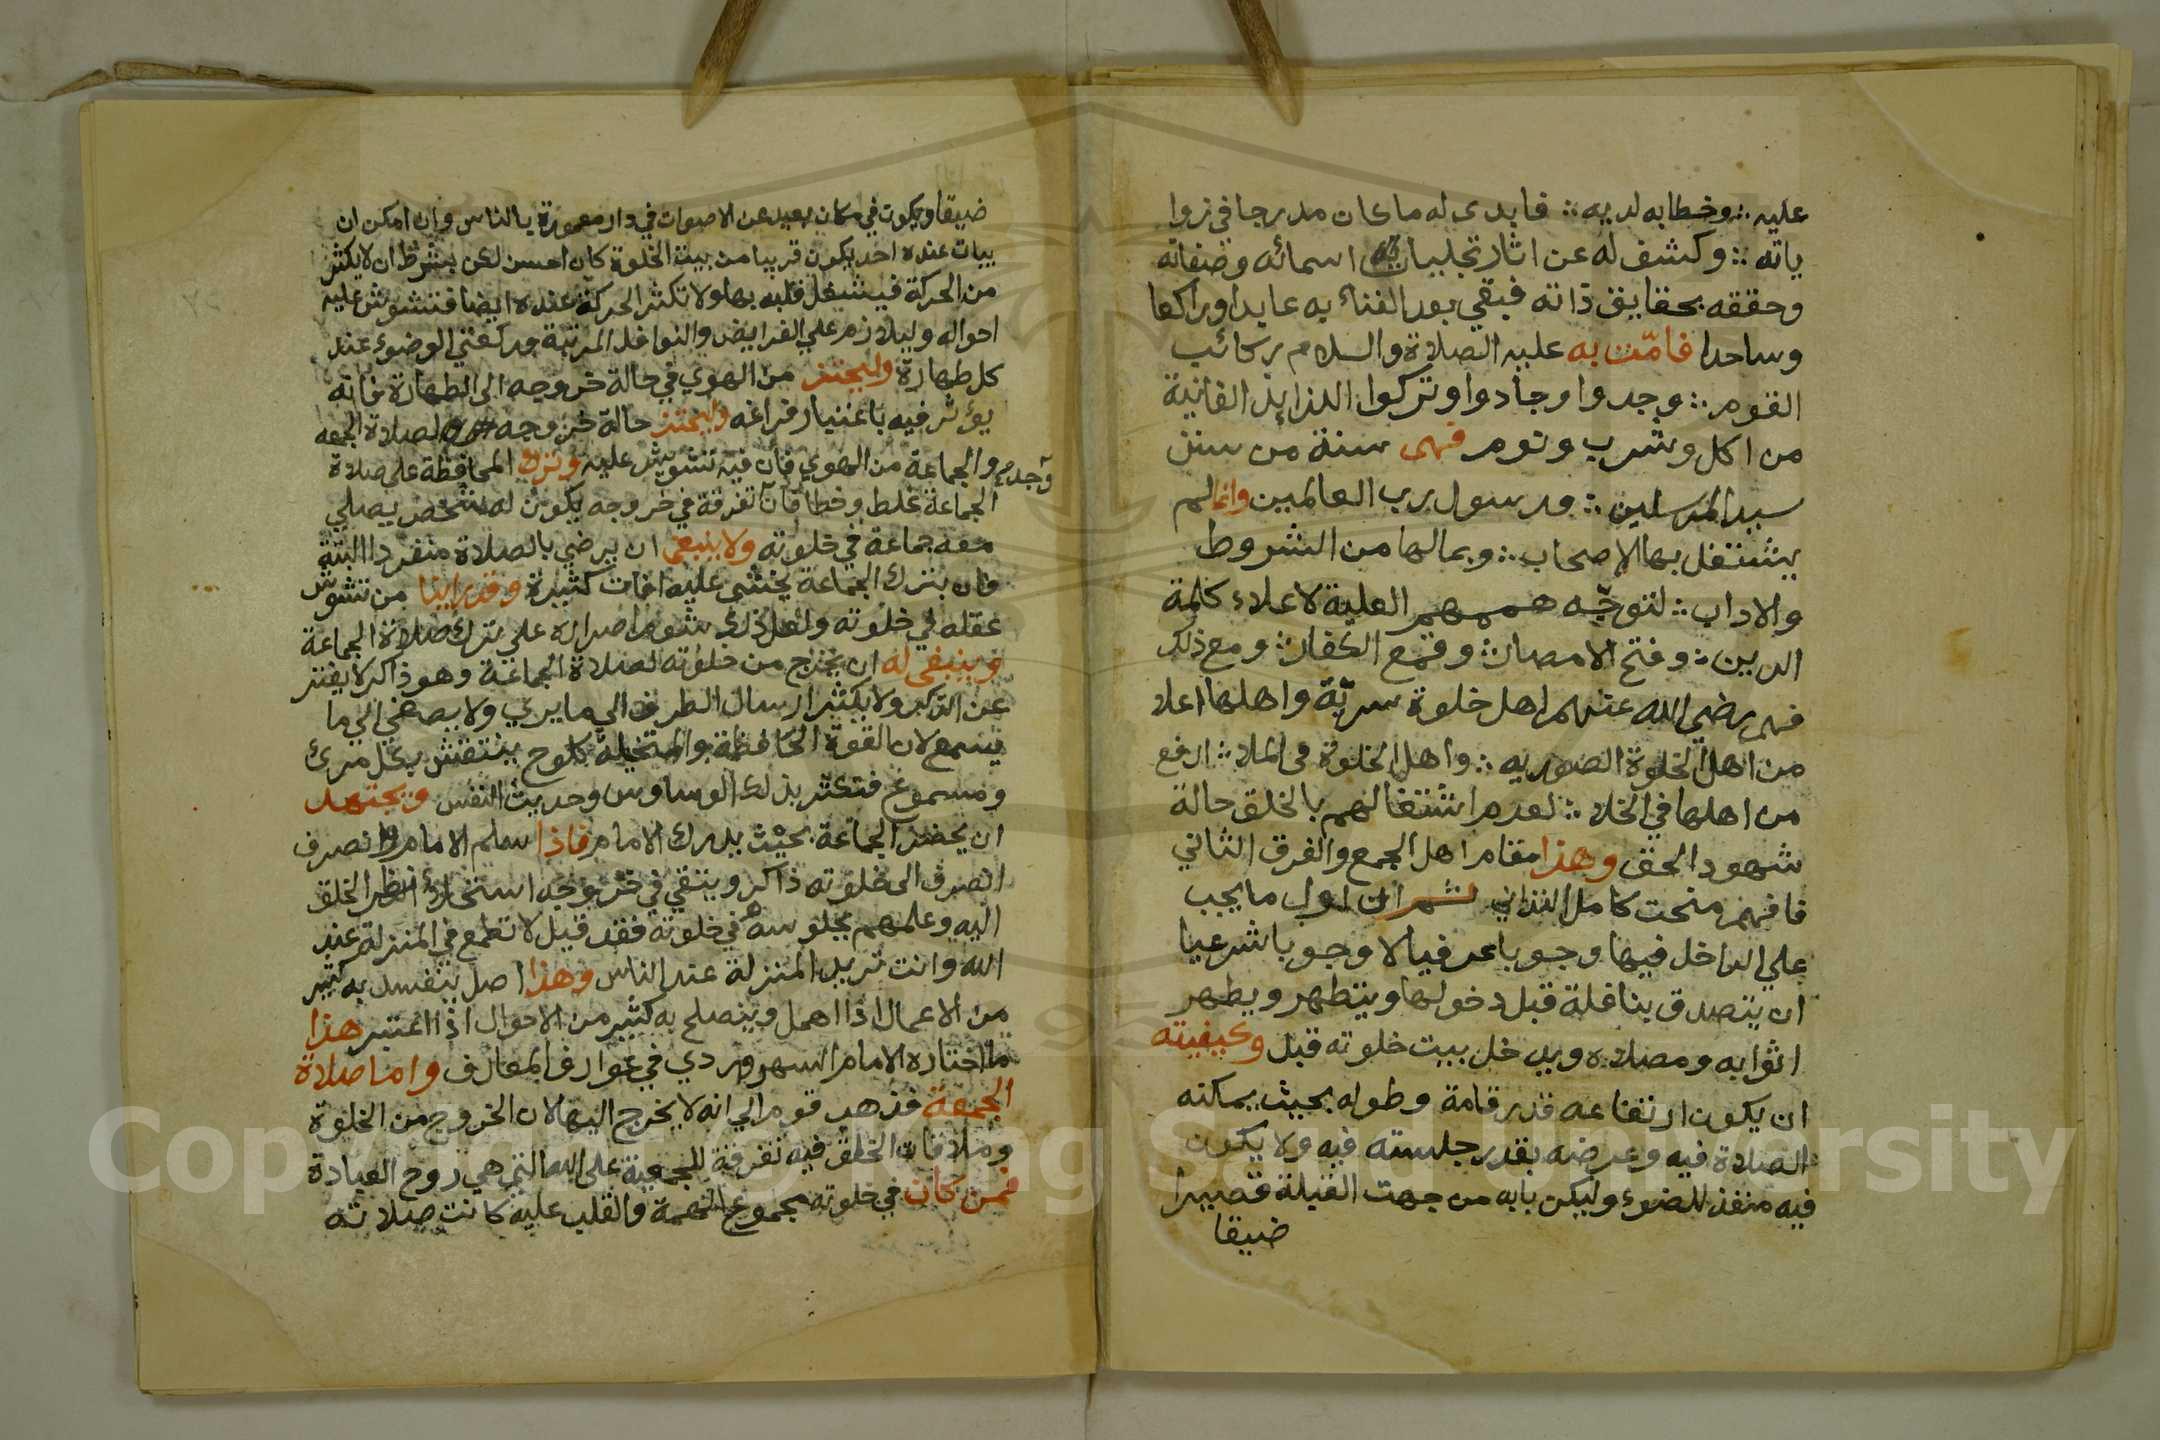 عليه ∴ وخطابه لديه ∴ فابدى له ما كان مدرجا في زوا
ياته ∴ وكشف له عن اثار تجليات اسمائه وصفاته
وحققه بحقايق ذاته فبقي بعد الفناء به عابدا وراكعا
وساجدا فامّت به عليه الصلاة والسلام ركائب
القوم ∴ وجدوا وجادوا وتركوا اللذايذ الفانية
من اكل وشرب ونوم فهى سنة من سنن
سيد المرسلين ∴ ورسول رب العالمين وانما لم
يشتغل بها الاصحاب ∴ وبمالها من الشروط
والاداب ∴ لتوجّه هممهم العلية لاعلاء كلمة
الدين ∴ وفتح الامصار ∴ وقمع الكفار ∴ ومع ذلك
فهم رضي الله عنهم اهل خلوة سريّة واهلها اعلا
من اهل الخلوة الصوريه ∴ واهل الخلوة في الملا ∴ ارفع
من اهلها في الخلا ∴ لعدم اشتغالهم بالخلق حالة
شهود الحق وهذا مقام اهل الجمع والفرق الثاني
فافهم منحت كامل التداني ثم ان اول ما يجب
علي الداخل فيها وجوبا عرفيا لا وجوبا شرعيا
ان يتصدق بنافلة قبل دخولها ويتطهر ويطهر
اثوابه ومصلاه ويدخل بيت خلوته قبل وكيفيته
ان يكون ارتفاعه قدر قامة وطوله بحيث يمكنه
الصلاة فيه وعرضه بقدر جلسته فيه ولا يكون
فيه منفذ للضوء وليكن بابه من جهت القبلة قصيرا
ضيقا
ضيقا ويكون في مكان بعيد عن الاصوات في دار معمورة بالناس وان امكن ان
يبات عنده احد يكون قريبا من بيت الخلوة كان احسن لكن بشرط ان لا يكثر
من الحركة فيشتغل قلبه بها ولا تكثر الحركة عنده ايضا فتشوش عليه
احواله وليلازم علي الفرايض والنوافل المرتبة وركعتي الوضوء عند
كل طهارة وليحترز من الهوي في حالة خروجه الى الطهارة فانه
يؤثر فيه باعتبار فراغه وليحترز حالة خروجه لصلاة الجمعه
والجماعة من الهوي فان فيه تشويش عليه وترك المحافظة على صلاة
الجماعة غلط وخطا فان تفرقة في خروجه يكون له شخص يصلي
معه جماعة في خلوته ولا ينبغى ان يرضي بالصلاة منفردا البتة
فان بترك الجماعة يخشى عليه افات كثيرة وقد راينا من تشوش
عقله في خلوته ولعل ذلك شوم اصراره على ترك صلاة الجماعة
وينبغى له ان يخرج من خلوته لصلاة الجماعة وهو ذاكر لا يفتر
عن الذكر ولا يكثر ارسال الطرف الي ما يري ولا يصغي الي ما
يسمع لان القوة الحافظة والمتخيلة كلوح ينتقش بكل مرئ
ومسموع فتكثر بذلك الوساوس وحديث النفس ويجتهد
ان يحضر الجماعة بحيث يدرك الامام فاذا سلم الامام وانصرف
انصرف الى خلوته ذاكر ويتقي في خروجه استحلاء نظر الخلق
اليه وعلمهم بجلوسه في خلوته فقد قيل لا تطمع في المنزلة عند
الله وانت تريد المنزلة عند الناس وهذا اصل ينفسد به كثير
من الاعمال اذا اهمل وينصلح به كثير من الاحوال اذا اعتبر هذا
ما اختاره الامام السهروردي في عوارف المعارف واما صلاة
الجمعة فذهب قوم الي انه لا يخرج اليها لان الخروج من الخلوة
وملاقات الخلق فيه تفرقة للجمعية على الله التي هي روح العبادة
فمن كان في خلوته مجموع الهمة والقلب عليه كانت صلاته
Copyright © King Saud University